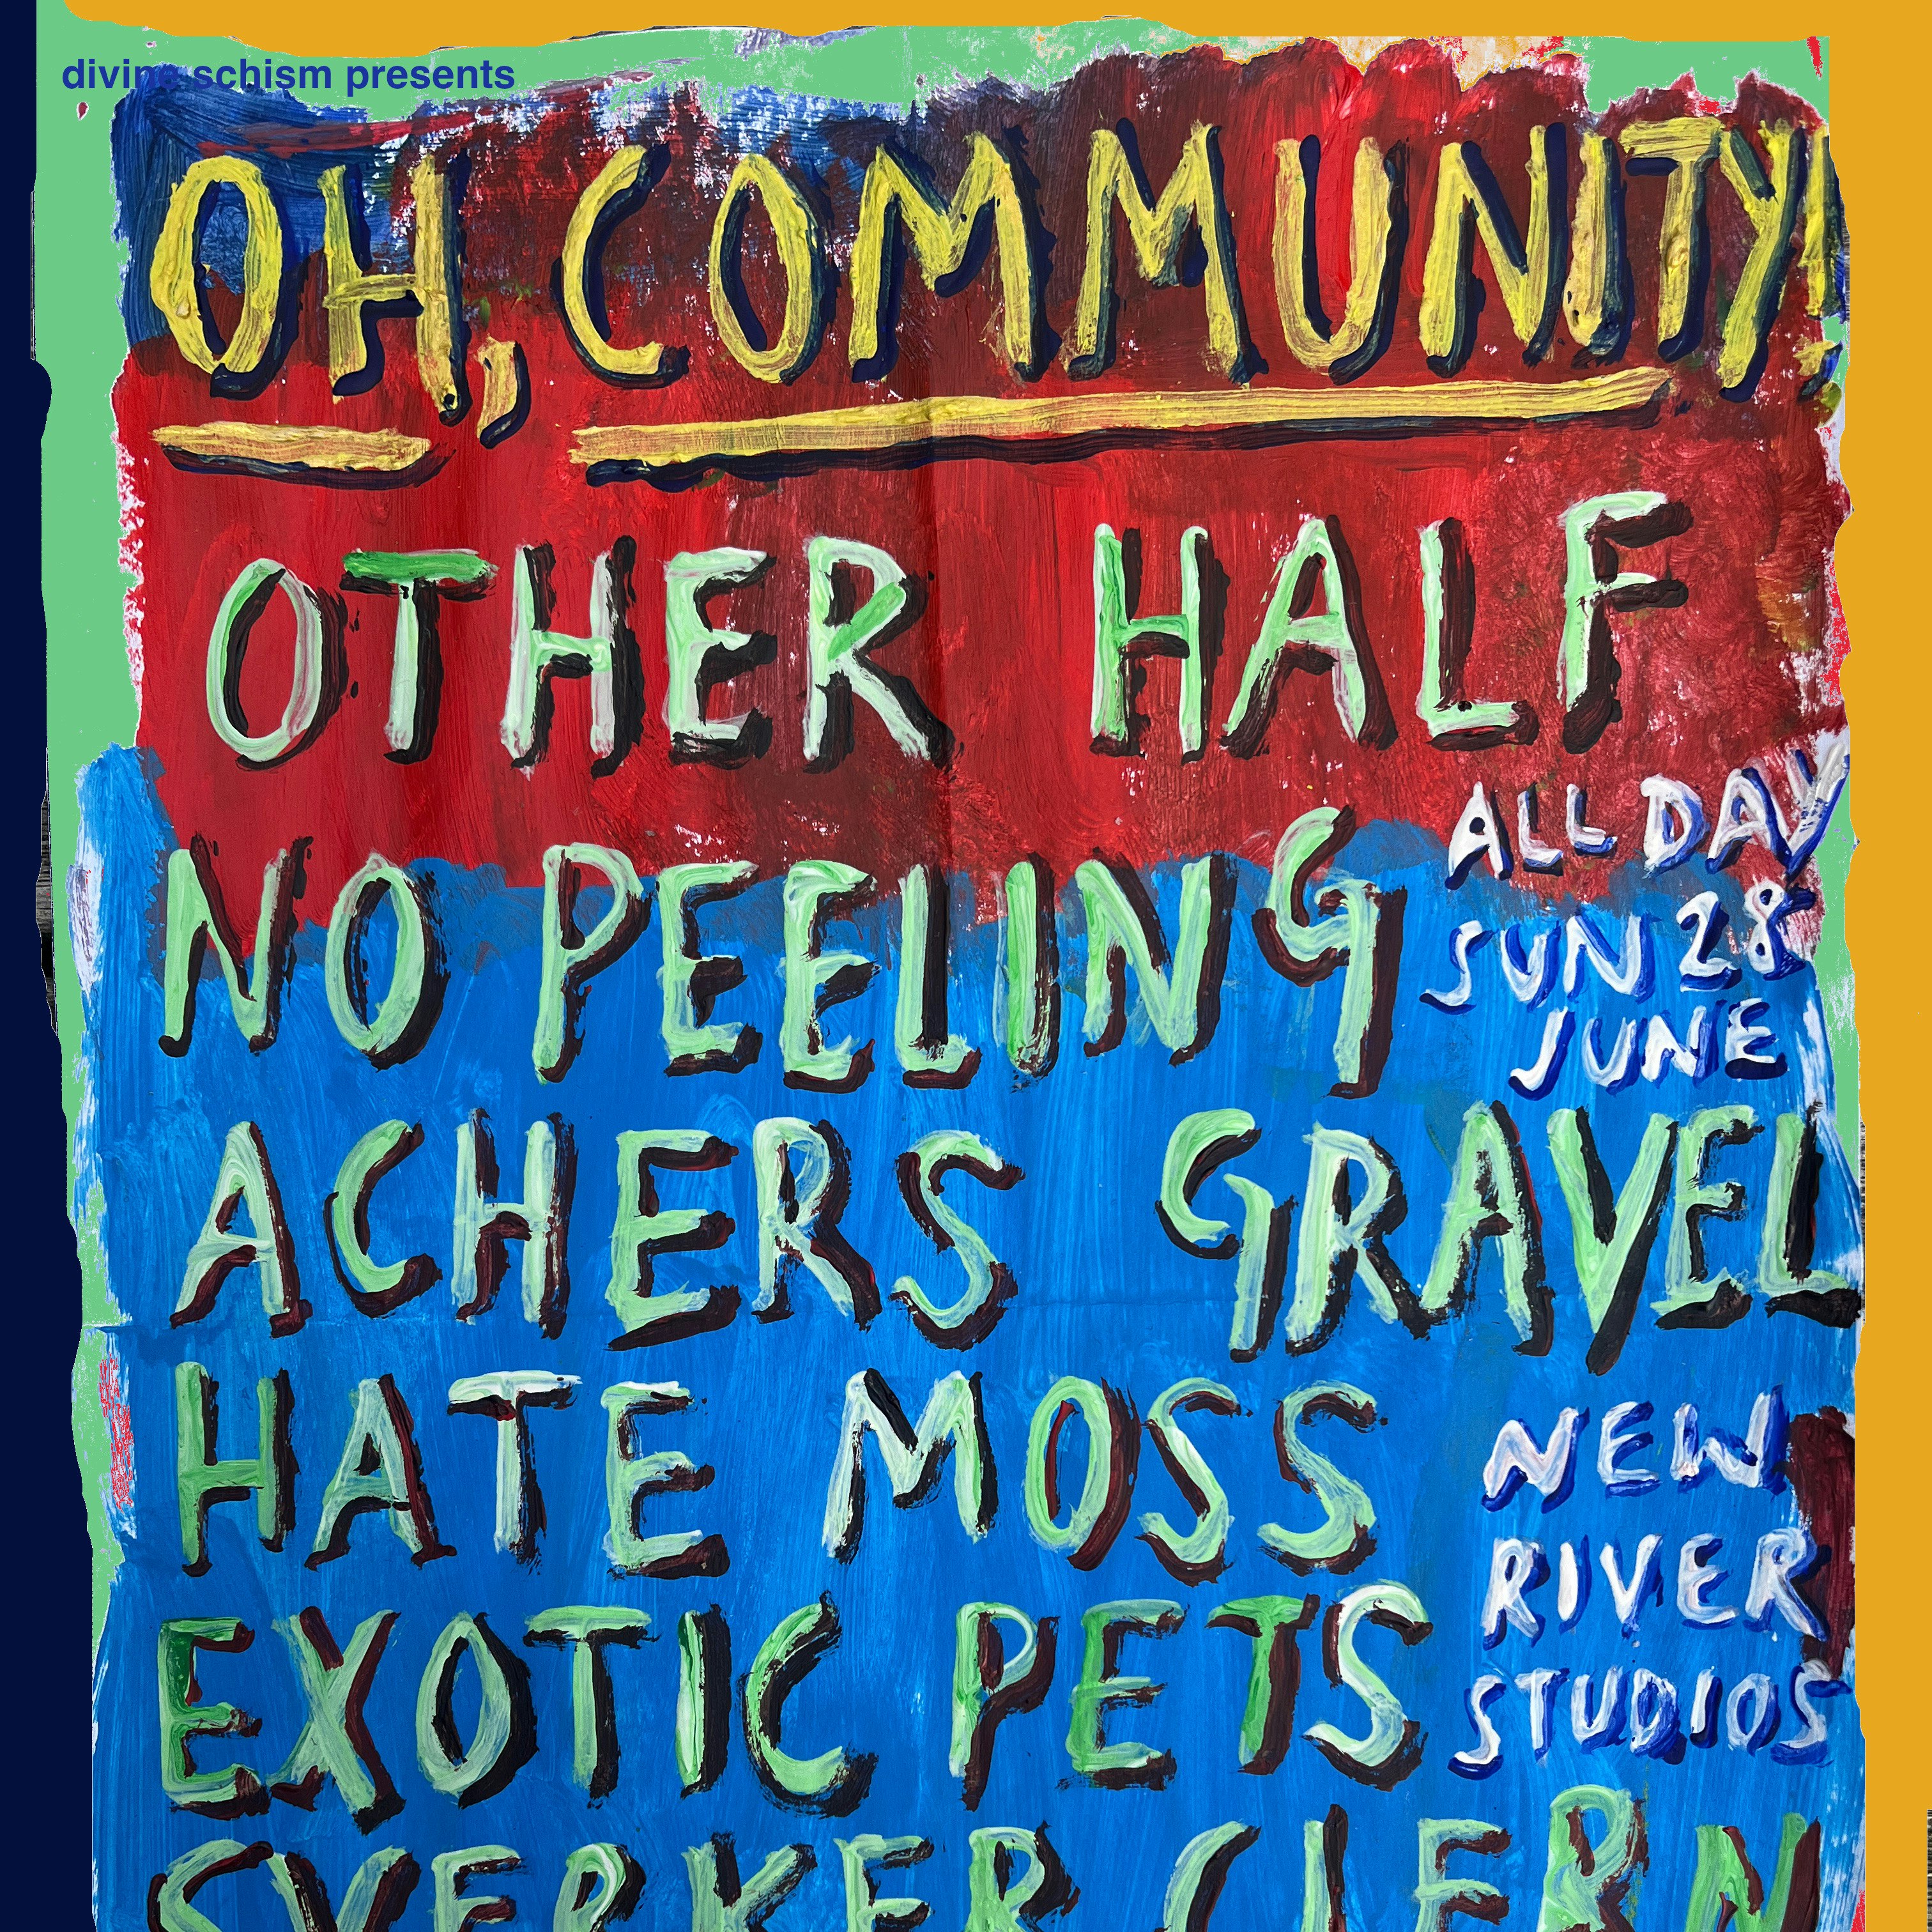 divine schism presents
OH, COMMUNITY!
OTHER HALF
ALL DAY
SUN 28
JUNE
NO PEELING
ACHERS GRAVEL
HATE MOSS
NEW
RIVER
STUDIOS
EXOTIC PETS